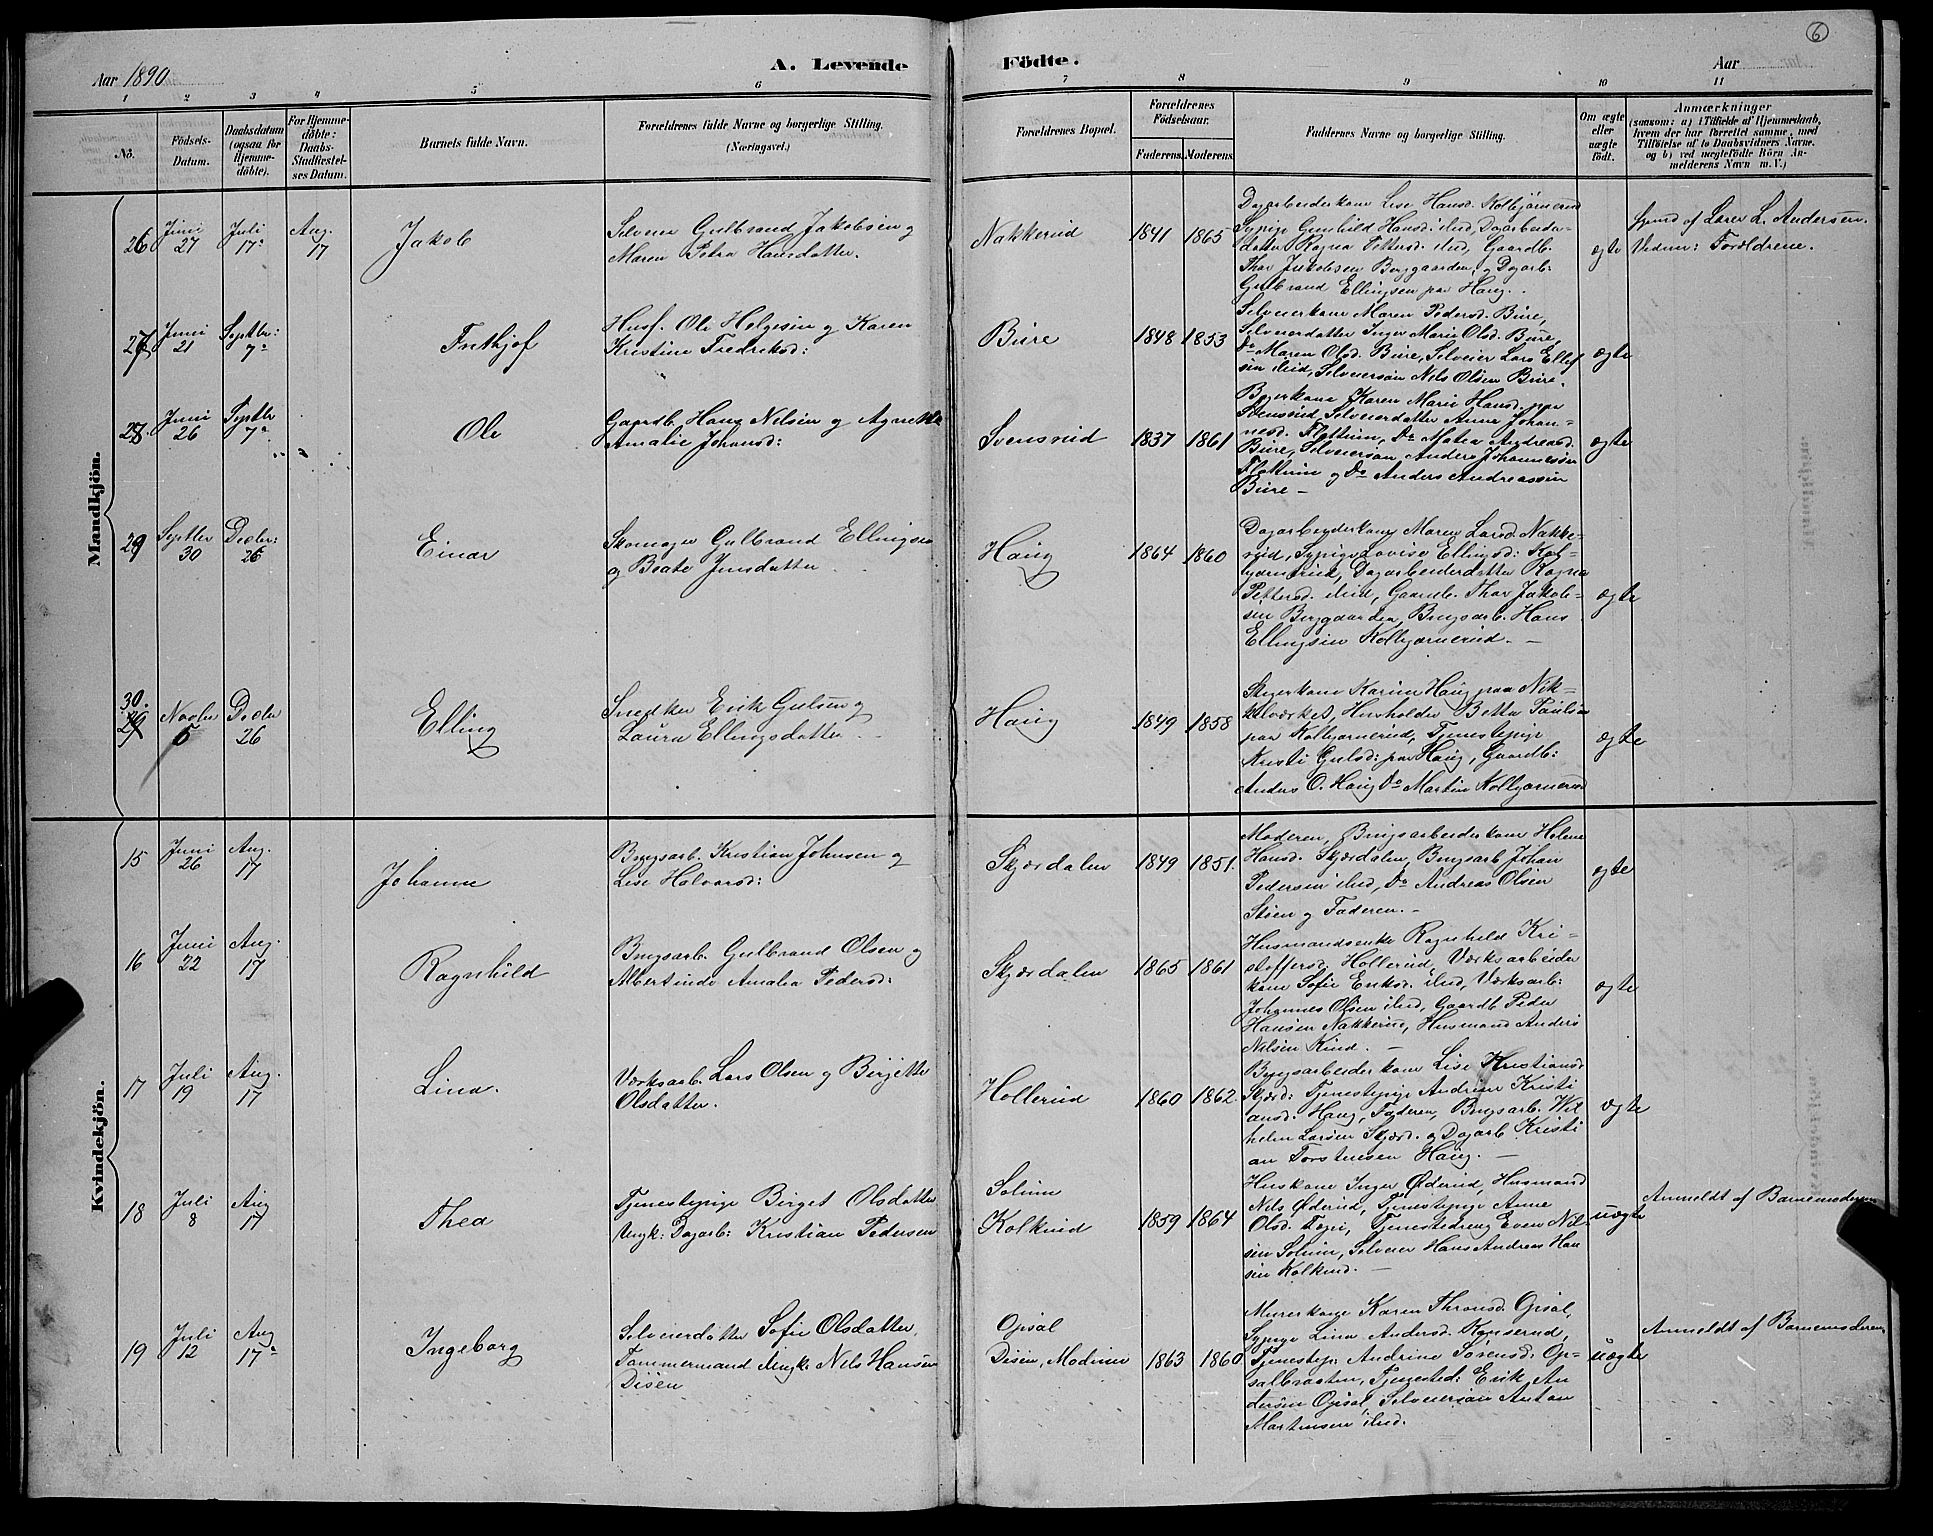 6
Aar 1890
A. Levende Födte.
Aar
1 2 3 4 5 6 7 8 9 10 11
No.
Födsels-Datum.
Daabsdatum (ogsaa for Hjemme-döbte).
For Hjemme-döbte: Daabs-Stadfæstel-ses Datum.
Barnets fulde Navn.
Forældrenes fulde Navne og borgerlige Stilling. (Næringsvei.)
Forældrenes Bopæl.
Forældrenes Födselsaar.
Faderens. Moderens.
Faddernes Navne og borgerlige Stilling.
Om ægte eller uægte födt.
Anmærkninger
(saasom: a) i Tilfælde af Hjemmedaab,
hvem der har forrettet samme, med
Tilföielse af to Daabsvidners Navne,
og b) ved uægtefödte Börn An-
melderens Navn m. V.)
Mandkjön.
26 Juni 27 Juli 17 Aug. 17
Jakob
Selveier Gulbrand Jakobsen og
Maren Petra Hansdatter.
Nakkerud 1841 1865
Dagarbeiderkone Lise Hansd. Kolbjörnerud
Sypige Gunhild Hansd. ibid, Dagarbeider-
datter Ragna Pettersd. ibid, Gaardb.
Thor Jakobsen Berggaarden, og Dagarb:
Gulbrand Ellingsen paa Haug.
ægte
Hjemd. af Lærer L. Andersen.
Vidner: Forældrene.
27 Juni 21 Septbr: 7
Frithjof
Husf. Ole Helgesen og Karen
Kristine Fredriksd:
Bure 1848 1853
Selveierkone Maren Pedersd. Bure,
Selveierdatter Inger Marie Olsd. Bure,
Do Maren Olsd. Bure, Selveier Lars Ellef
sen ibid, Selveiersön Nils Olsen Bure.
ægte
28. Juni 26 Septbr 7
Ole
Gaardb. Hans Nilsen og Agnethe
Amalie Johansd:
Svensrud 1837 1861
Karen Marie Hansd. paa
Svensrud, Selveierdatter Anne Johan-
nesd. Flottum, Do Matea Andreasd.
Bure, Selveiersön Anders Johannesen
Flottum og Do Anders Andreassen
Bure -
ægte
29 Septbr 30 Decbr: 26
Einar
Skomager Gulbrand Ellingsen
og Beate Jensdatter
Haug 1864 1860
Dagarbeiderkone Maren Larsd. Nakke-
rud, Sypige Lovise Ellingsd: Kol-
bjørnerud, Dagarbeiderdatter Ragna
Pettersd. ibid, Gaardb. Thor Jakob-
sen Berggaarden, Brugsarb. Hans
Ellingsen Kolbjørnerud. -
ægte
30. 29 Novbr 5 Decbr 26
Elling
Snedker Erik Gulsen og
Laura Ellingsdatter.
Haug 1849 1858
Karine Haug paa Nik-
kelværket, Husholder Betta Paulsen
paa Kolbjørnerud, Tjenestepige
Kristi Gulsd: paa Haug, Gaardb:
Anders O. Haug Do Martin Kolbjørnerud
ægte
Kvindekjön.
15 Juni 26 Aug. 17
Johanne
Brugsarb. Kristian Johnsen og
Lise Halvorsd:
Skjærdalen 1849 1851.
Moderen, Brugsarbeiderkone Helene
Hansd. Skjærdalen, Brugsarb. Johan
Pedersen ibid, Do Andreas Olsen
Stöen og Faderen. -
ægte
16 Juni 22 Aug. 17
Ragnhild
Brugsarb. Gulbrand Olsen og
Albertinde Amalia Pedersd:
Skjærdalen 1865 1861
Husmandsenke Ragnhild Kri-
stoffersd. Hollerud, Værksarbeider
kone Sofie Eriksd. ibid, Værksarb:
Johannes Olsen ibid, Gaardb. Peder
Hansen Nakkerud, Husmand Anders
Nilsen Rud. -
ægte
17 Juli 19 Aug. 17
Lina.
Værksarb. Lars Olsen og Birjitte
Olsdatter.
Hollerud 1860 1862
Brugsarbeiderkone Lise Kristiansd
Skjærd: Tjenestepige Andrine Kristi
ansd. Haug, Faderen, Brugsarb. Wil
helm Larsen Skjærd. og Dagarb. Kristi
an Torstensen Haug. -
ægte
18 Juli 8 Aug 17
Thea
Tjenestepige Birget Olsdatter
Ungk: Dagarb: Kristian Pedersen
Solum
Kolkind 1859 1864
Huskone Inger Øderud, Husmand
Nils Øderud, Tjenestepige Anne
Olsd. Fagei, Tjenestedreng Even Nil-
sen Solum, Selveier Hans Andreas Han
sen Kolkind. -
uægte
Anmeldt af Barnemoderen
19 Juli 12 Aug 17
Ingeborg
Selveierdatter Sofie Olsdatter,
Tømmermand Ungk: Nils Hansen
Disen
Opsal
Disen, Modum 1863 1860
Murerkone Karen Thronsd. Opsal,
Sypige Lina Andersd. Konserud,
Tjenestep: Andrine Sörensd: Op-
salbraaten, Tjenested: Erik An
dersen Opsal, Selveiersön Anton
Martinsen ibid.
uægte
Anmeldt af Barnemoderen.